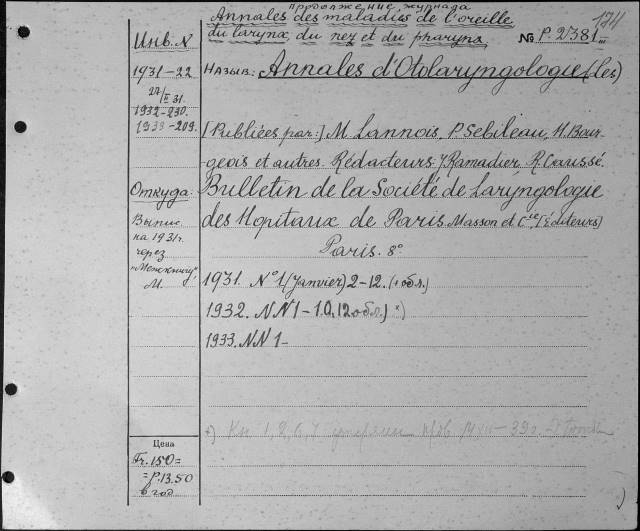 продолжение журнала
Annales des maladies de l'oreille
du larynx, du nez et du pharynx
174
№ P.2381 III
Инв. N
1931-22
27/II 31.
1932-230.
1933-209.
Назыв: Annales d'Otolaryngologie (Les)
[Publiées par:] M. Lannois, P. Sebileau, H. Bour-
geois et autres. Rédacteurs: J. Ramadier, R. Caussé.
Откуда:
Выпис.
на 1931г.
через
"Межкнигу",
М.
Bulletin de la Société de Laryngologie
des Hopitaux de Paris. Masson et Cie, [Éditeurs]
Paris. 8°.
1931. N°1 (Janvier) 2-12. (+обл.)
1932. NN 1-10, 12 обл.) *)
1933. NN 1-
*) Кн. 1, 2, 6, 7 утеряны
Цена
Fr. 150=
=р.13.50
в год